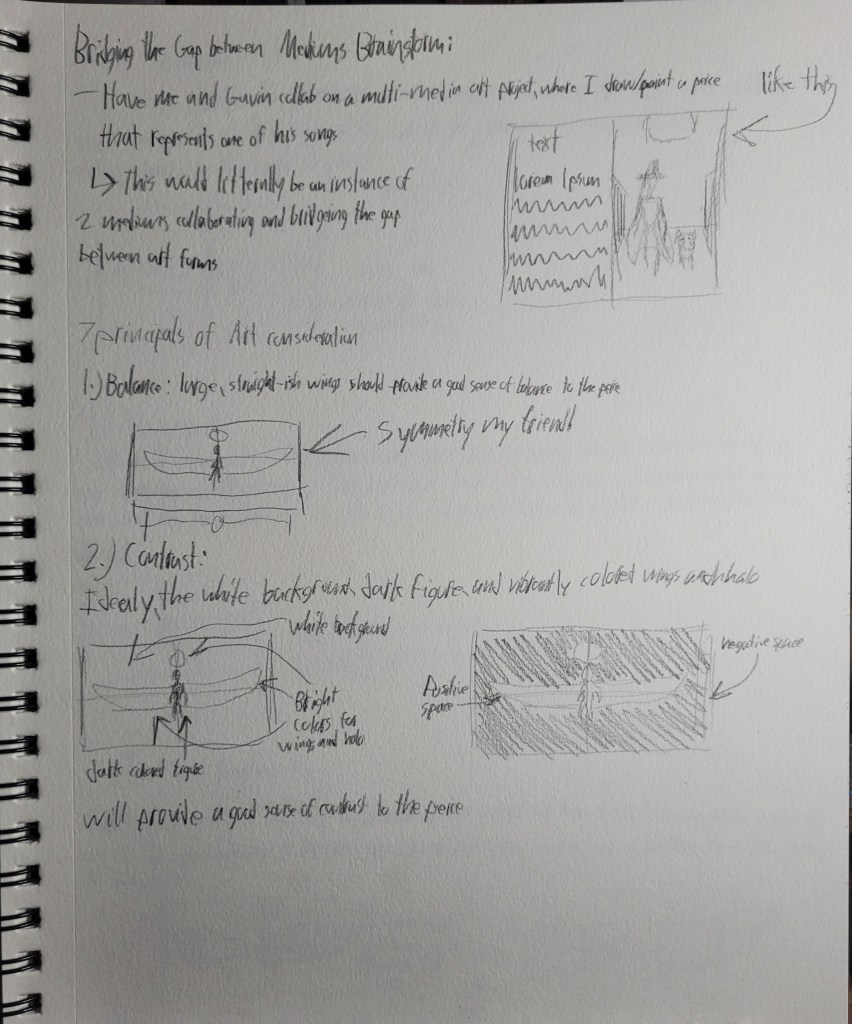 Bridging the Gap between Mediums Brainstorm:
- Have me and Gavin collab on a multi-media art project, where I draw/paint a peice
that represents one of his songs
↳ This would litterally be an instance of
2 mediums collaborating and bridgeing the gap
between art forms
like this
text
lorem Ipsum
7 principals of Art consideration
1.) Balance: large, straight-ish wings should provide a good sense of balance to the peice
Symmetry my friend!
2.) Contrast:
Idealy, the white background, dark figure, and vibrantly colored wings and halo
white background
Bright
colors for
wings and halo
dark colored figure
Positive
space
negative space
will provide a good sense of contrast to the peice